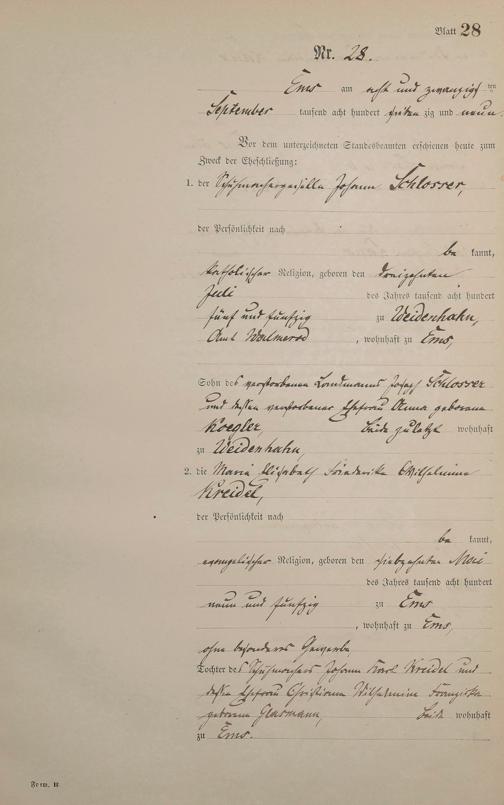 Blatt 28
Nr. 28.
Ems am acht und zwanzigsten
September tausend acht hundert sieben zig und neun.
Vor dem unterzeichneten Standesbeamten erschienen heute zum
Zweck der Eheschließung:
1. der Schuhmachergeselle Johann Schlosser,
der Persönlichkeit nach
be kannt,
katholischer Religion, geboren den dreizehnten
Juli des Jahres tausend acht hundert
fünf und fünfzig zu Weidenhahn,
Amt Wallmerod, wohnhaft zu Ems,
Sohn des verstorbenen Landmanns Josef Schlosser
und dessen verstorbener Ehefrau Anna geborene
Koegler, beide zuletzt wohnhaft
zu Weidenhahn,
2. die Maria Elisabeth Friederike Wilhelmine
Kreidel,
der Persönlichkeit nach
be kannt,
evangelischer Religion, geboren den siebzehnten Mai
des Jahres tausend acht hundert
neun und fünfzig zu Ems
, wohnhaft zu Ems,
ohne besonderes Gewerbe
Tochter des Schuhmachers Johann Karl Kreidel und
dessen Ehefrau Christiane Wilhelmine Franziska
geborene Glasmann, beide wohnhaft
zu Ems.
Form. B.